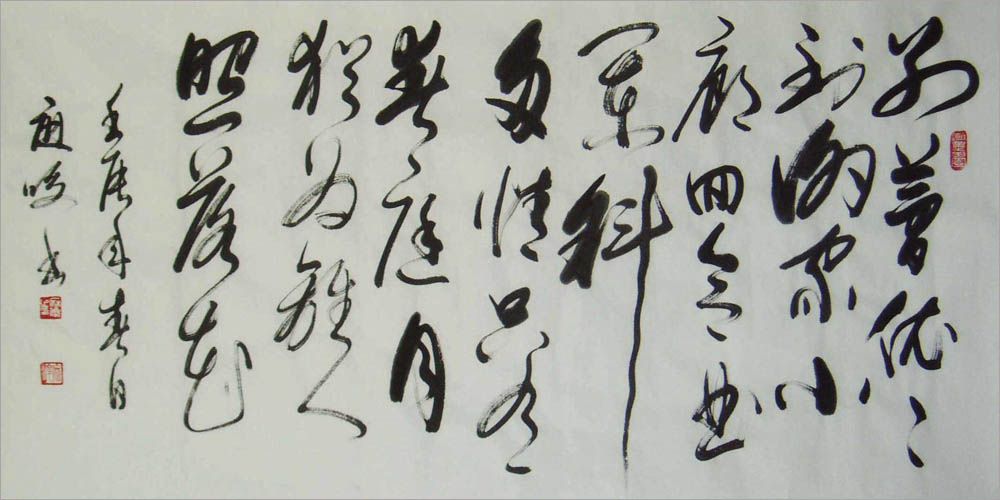 别夢依〻
到謝家小
廊回合曲
闌斜
多情只有
春庭月
猶为離人
照落花
壬辰年春日
书